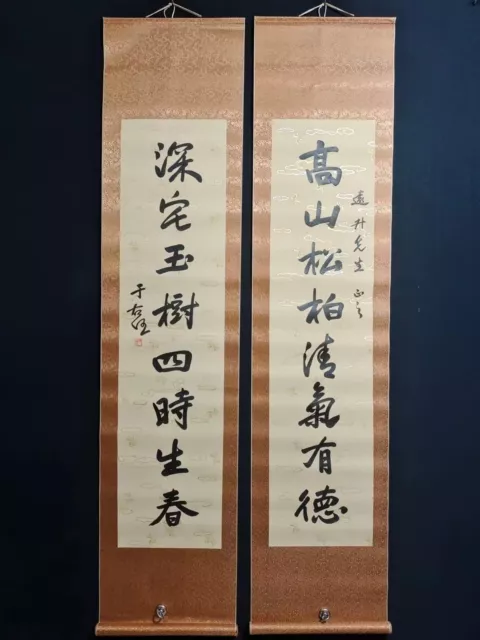 先生 正之
高山松柏清氣有德
深宅玉樹四時生春
于右任